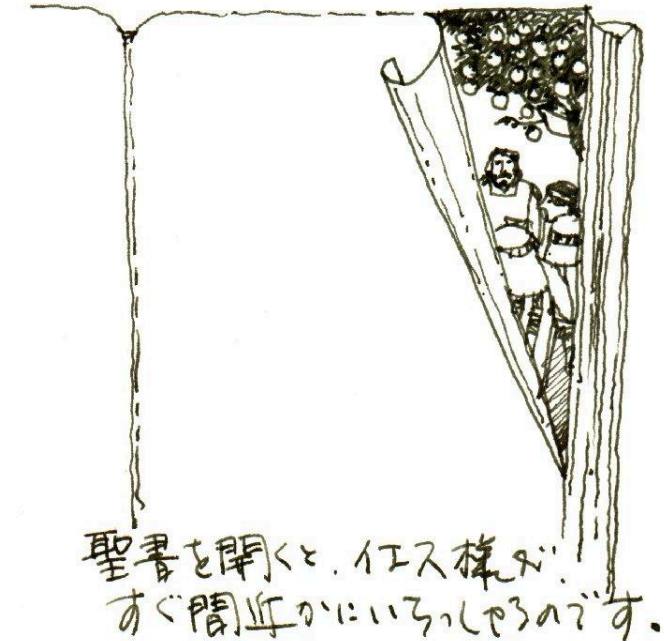 聖書を開くと、イエス様が、
すぐ間近かにいらっしゃるのです。